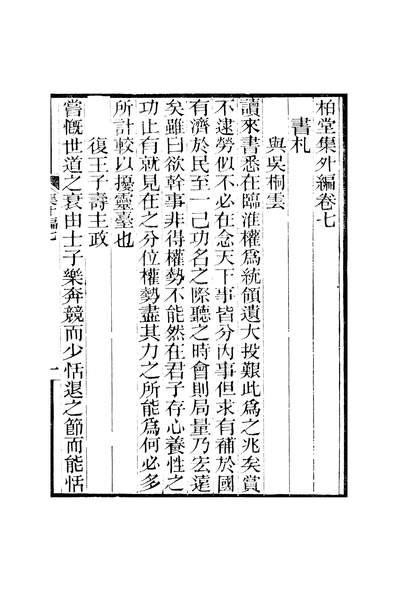 柏堂集外編卷七
書札
與吳桐雲
讀來書悉在臨淮權爲統領遺大投艱此爲之兆矣賞
不逮勞似不必在念天下事皆分內事但求有補於國
有濟於民至一己功名之際聽之時會則局量乃宏遠
矣雖曰欲幹事非得權勢不能然在君子存心養性之
功止有就見在之分位權勢盡其力之所能爲何必多
所計較以擾靈臺也
復王子壽主政
嘗慨世道之衰由士子樂奔競而少恬退之節而能恬
一